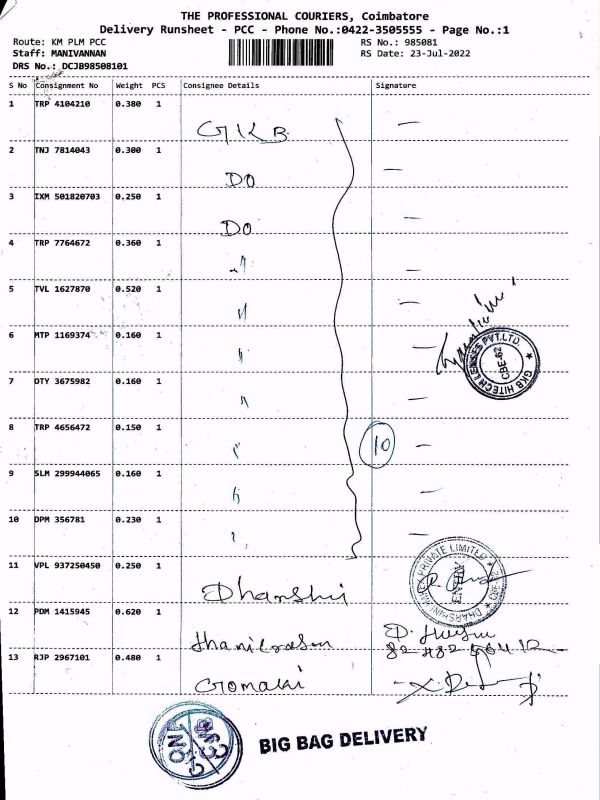 THE PROFESSIONAL COURIERS, Coimbatore
Delivery Runsheet - PCC - Phone No.:0422-3505555 - Page No.:1
Route: KM PLM PCC RS No.: 985081
Staff: MANIVANNAN RS Date: 23-Jul-2022
DRS No.: DCJB98508101
S No Consignment No Weight PCS Consignee Details Signature
1 TRP 4104210 0.380 1 GKB —
2 TNJ 7814043 0.300 1 DO —
3 IXM 501820703 0.250 1 DO —
4 TRP 7764672 0.360 1 〃 —
5 TVL 1627870 0.520 1 〃 —
6 MTP 1169374 0.160 1 〃 —
GKB HITECH LENSES PVT.LTD. CBE-62
7 OTY 3675982 0.160 1 〃 —
8 TRP 4656472 0.150 1 〃 10 —
9 SLM 299944065 0.160 1 〃 —
10 DPM 356781 0.230 1 〃
11 VPL 937250450 0.250 1 Dharshini
PRIVATE LIMITED
12 PDM 1415945 0.620 1
13 RJP 2967101 0.480 1 Gomathi
BIG BAG DELIVERY